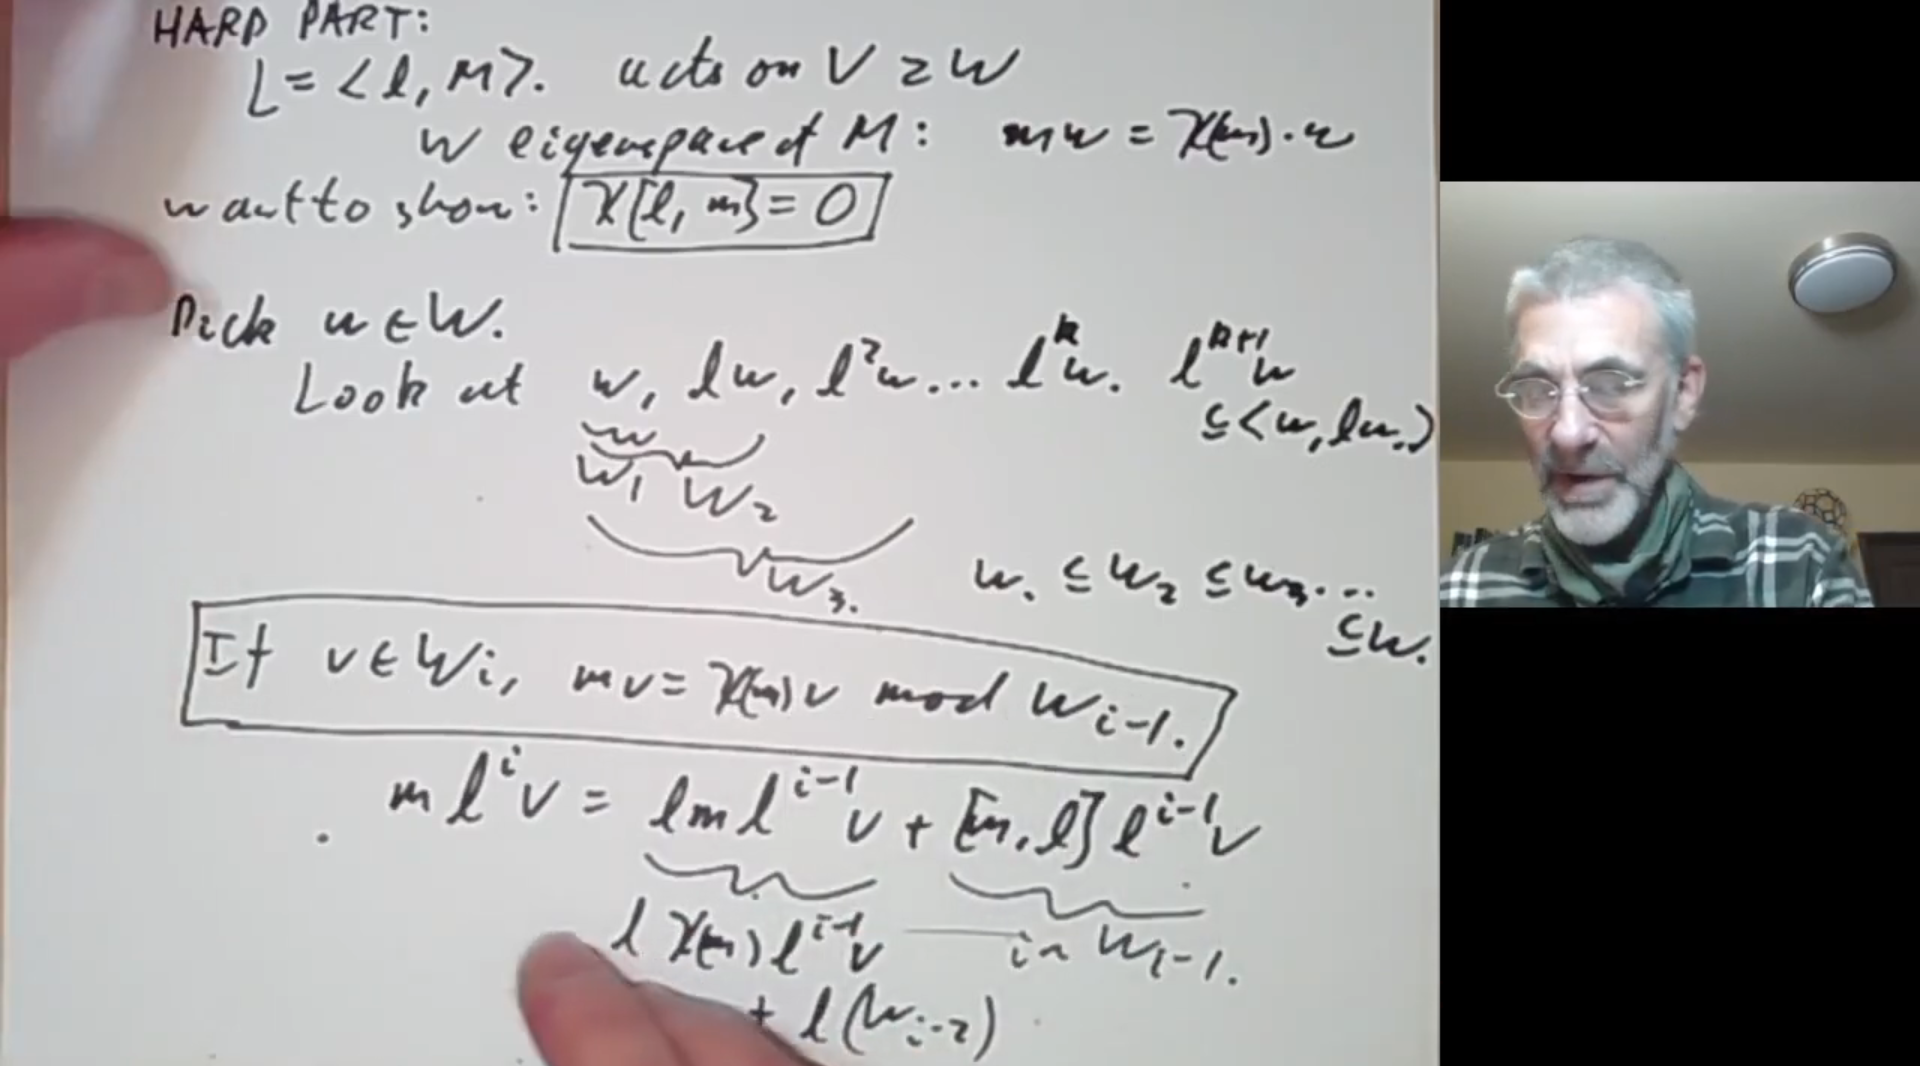 HARD PART:
L = <l, M>. acts on V ⊇ W
W eigenspace of M: mw = χ(m)·w
want to show: χ[l, m] = 0
Pick w ∈ W.
Look at w, lw, l²w... l^k w. l^{k+1} w
⊆ <w, lw..>
W₁ W₂
W₃.
W₁ ⊆ W₂ ⊆ W₃...
⊆ W.
If v ∈ Wi, mv = χ(m)v mod W_{i-1}.
m l^i v = l m l^{i-1} v + [m, l] l^{i-1} v
l χ(m) l^{i-1} v in W_{i-1}.
+ l(W_{i-2})